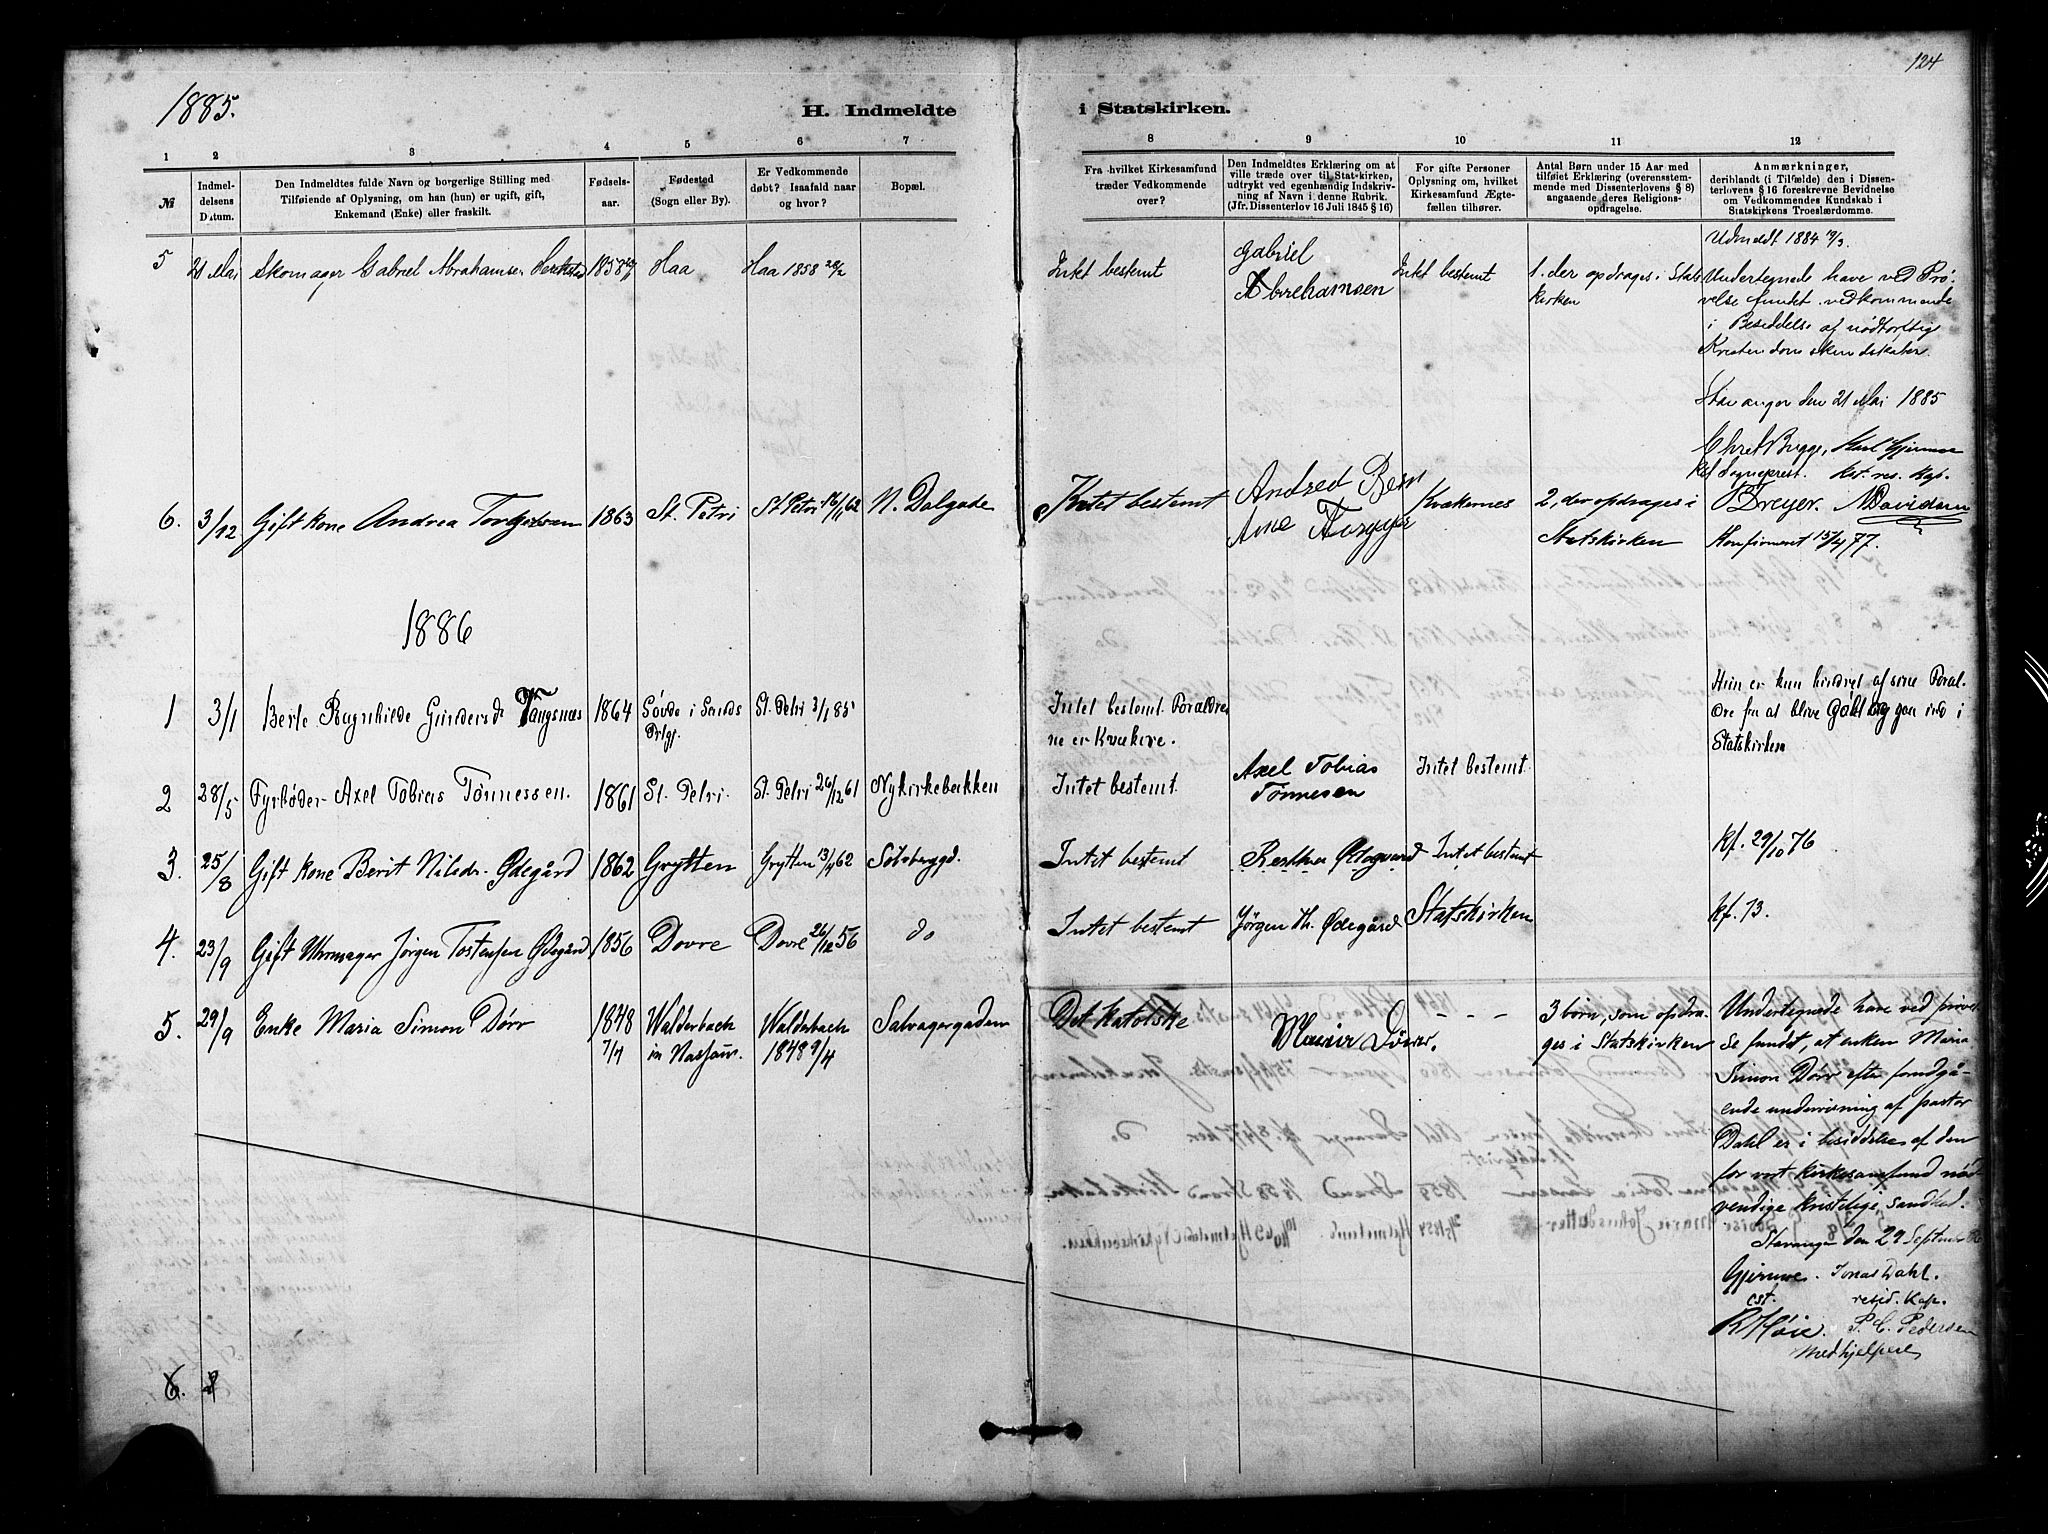 124
1885.
H. Indmeldte i Statskirken.
1 2 3 4 5 6 7 8 9 10 11 12
№
Indmel-
delsens
Datum.
Den Indmeldtes fulde Navn og borgerlige Stilling med
Tilføiende af Oplysning, om han (hun) er ugift, gift,
Enkemand (Enke) eller fraskilt.
Fødsels-
aar.
Fødested
(Sogn eller By).
Er Vedkommende
døbt? Isaafald naar
og hvor?
Bopæl.
Fra hvilket Kirkesamfund
træder Vedkommende
over?
Den Indmeldtes Erklæring om at
ville træde over til Stat-kirken,
udtrykt ved egenhændig Indskriv-
ning af Navn i denne Rubrik.
(Jfr. Dissenterlov 16 Juli 1845 § 16)
For gifte Personer
Oplysning om, hvilket
Kirkesamfund Ægte-
fællen tilhører.
Antal Børn under 15 Aar med
tilføiet Erklæring (overensstem-
mende med Dissenterlovens § 8)
angaaende deres Religions-
opdragelse.
Anmærkninger,
deriblandt (i Tilfælde) den i Dissen-
terlovens § 16 foreskrevne Bevidnelse
om Vedkommendes Kundskab i
Statskirkens Troeslærdomme.
5 21 Mai Skomager Gabriel Abrahamsen 1858 Haa Haa 1858 Intet bestemt
Gabriel
Abrehamsen
Intet bestemt
1. der opdrages i Stats
kirken
Udmeldt 1884
Undertegnede have ved Prø-
velse fundet vedkommende
i Besiddelse af nødtørftig
Kristendomskundskaber.
Stavanger den 21 Mai 1885
Chr. Bugge, Karl Gjerme
Sogneprest. res. Kap.
Dreyer. Davidsen
Konfirmeret 15/4 77.
6. 3/12 Gift kone Andrea Torgersen 1863 St. Petri St Petri 16/11 62 N. Dalgade Intet bestemt
Kvækernes
2, der opdrages i
Statskirken
1886
1 3/1 Berte Ragnhilde Gundersd. Vangsnæs 1864
Søvde i Sands
Prlgj.
St. Petri 3/1 85
Intet bestemt Foraldre
ne er Kvækere.
Hun er kun hindret af sine Foræl-
dre fra at blive og gaa ind i
Statskirken
2 28/5 Fyrbøder Axel Tobias Tønnessen. 1861 St. Petri. St. Petri 26/12 61 Nykirkebakken Intet bestemt.
Axel Tobias
Tønnesen
Intet bestemt.
3. 25/8 Gift kone Berit Nilsdr. Ødegård 1862 Grytten Grytten 13/4 62 Intet bestemt Ødegaard Intet bestemt kf. 29/10 76
4. 23/9 Gift Uhrmager Jørgen Tostensen Ødegård 1856 Dovre Dovre 26/12 56 do Intet bestemt Jørgen Th. Ødegård Statskirken kf. 73.
5. 29/9 Enke Maria Simon Dörr
1848
7/4
Walderbach
in Nassau
Walderbach
1848 9/4
Salvagergaden
Det katolske
- - -
3 børn, som opdra-
ges i Statskirken
Undertegnede have ved prøvel
se fundet, at enken Maria
Simon Dörr efter forudgå-
ende undervisning af pastor
Dahl er i besiddelse af den
for vort kirkesamfund nød
vendige kristelige sandhed.
Stavanger den 29 September
Gjerme. Jonas Dahl.
cst. resid. Kap.
R Høie. P. C. Pedersen
Medhjelpere
6.